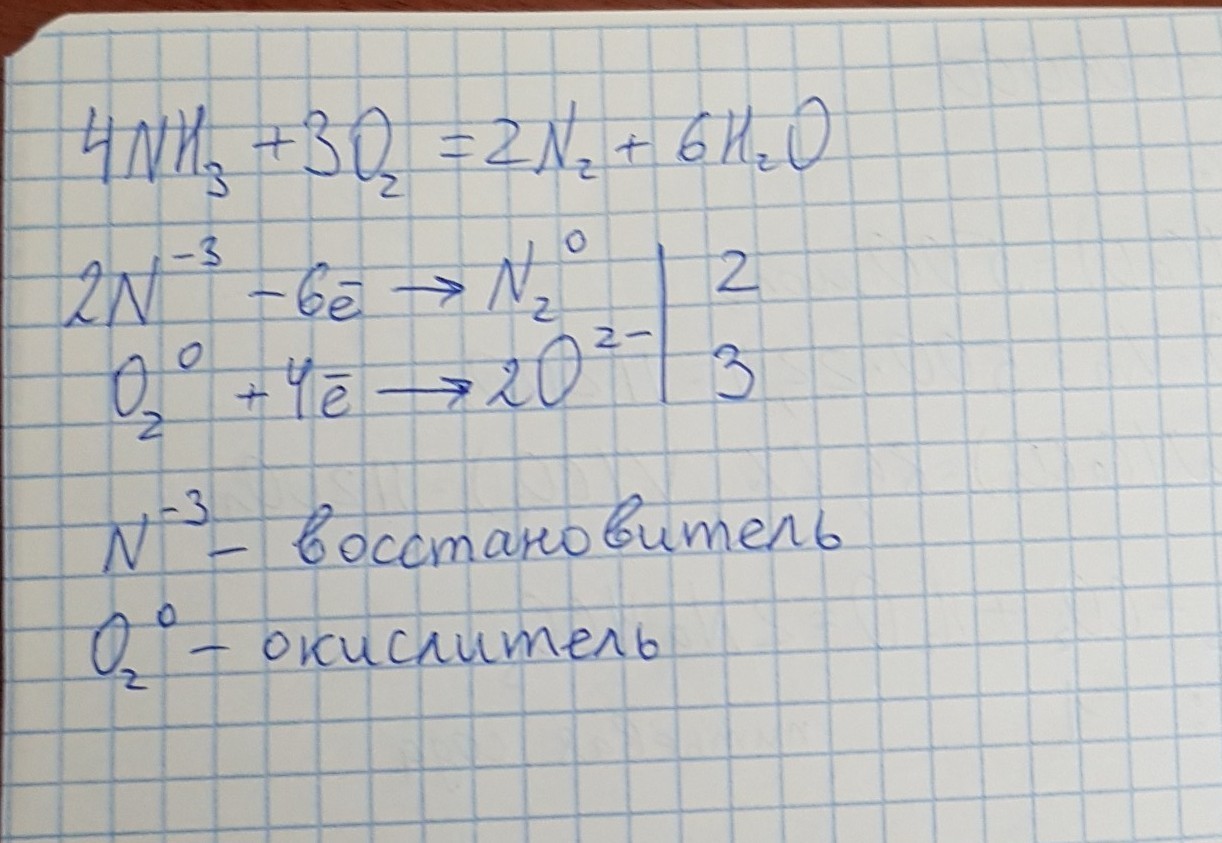 4NH₃ + 3O₂ = 2N₂ + 6H₂O
2N⁻³ – 6ē → N₂⁰ | 2
O₂⁰ + 4ē → 2O²⁻ | 3
N⁻³ – восстановитель
O₂⁰ – окислитель